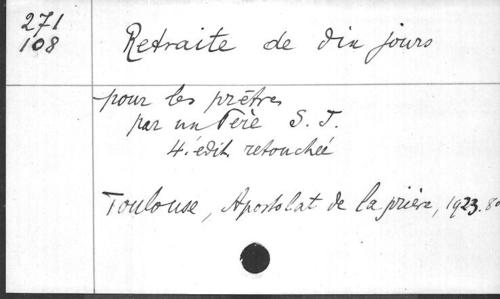 271
108
Retraite de dix jours
pour les prêtres
par un Père S. J.
4.e édit retouchée
Toulouse, Apostolat de la prière, 1923. 8o